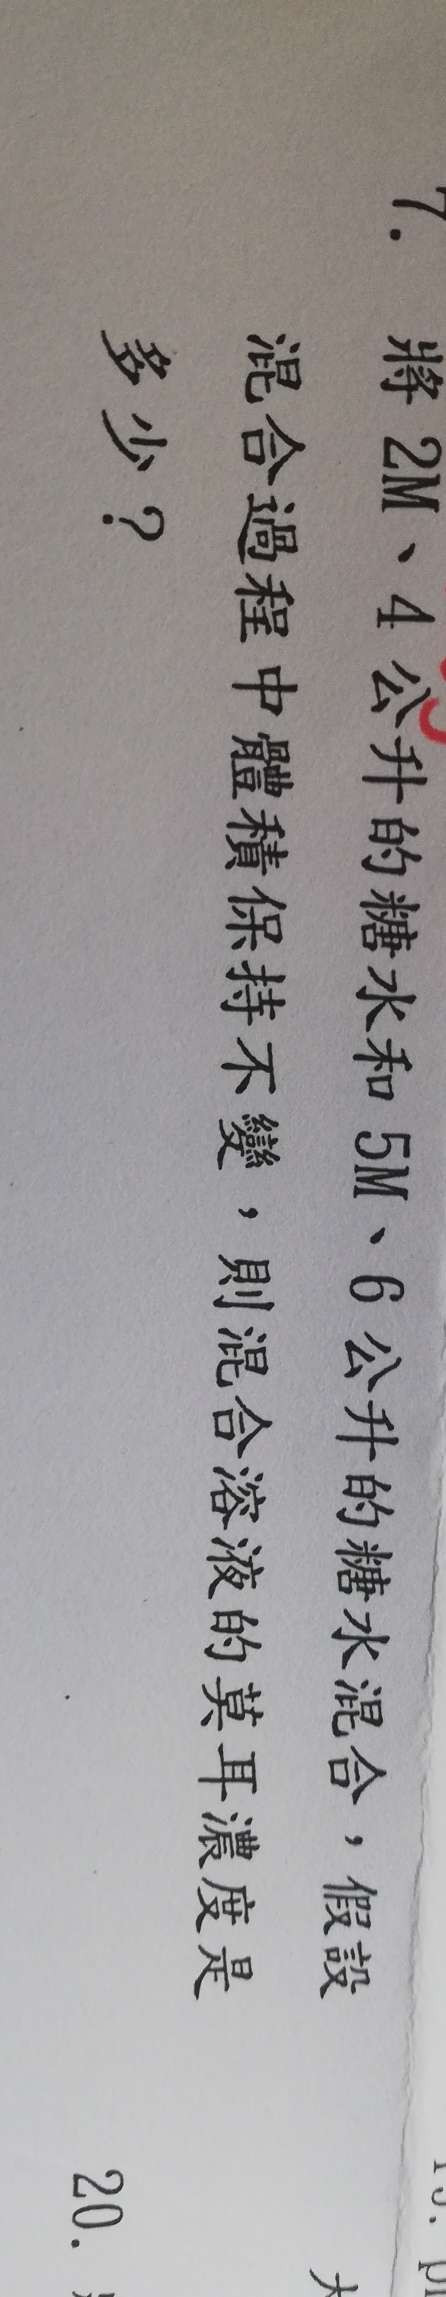 7. 將 2M、4 公升的糖水和 5M、6 公升的糖水混合，假設
混合過程中體積保持不變，則混合溶液的莫耳濃度是
多少？
20.